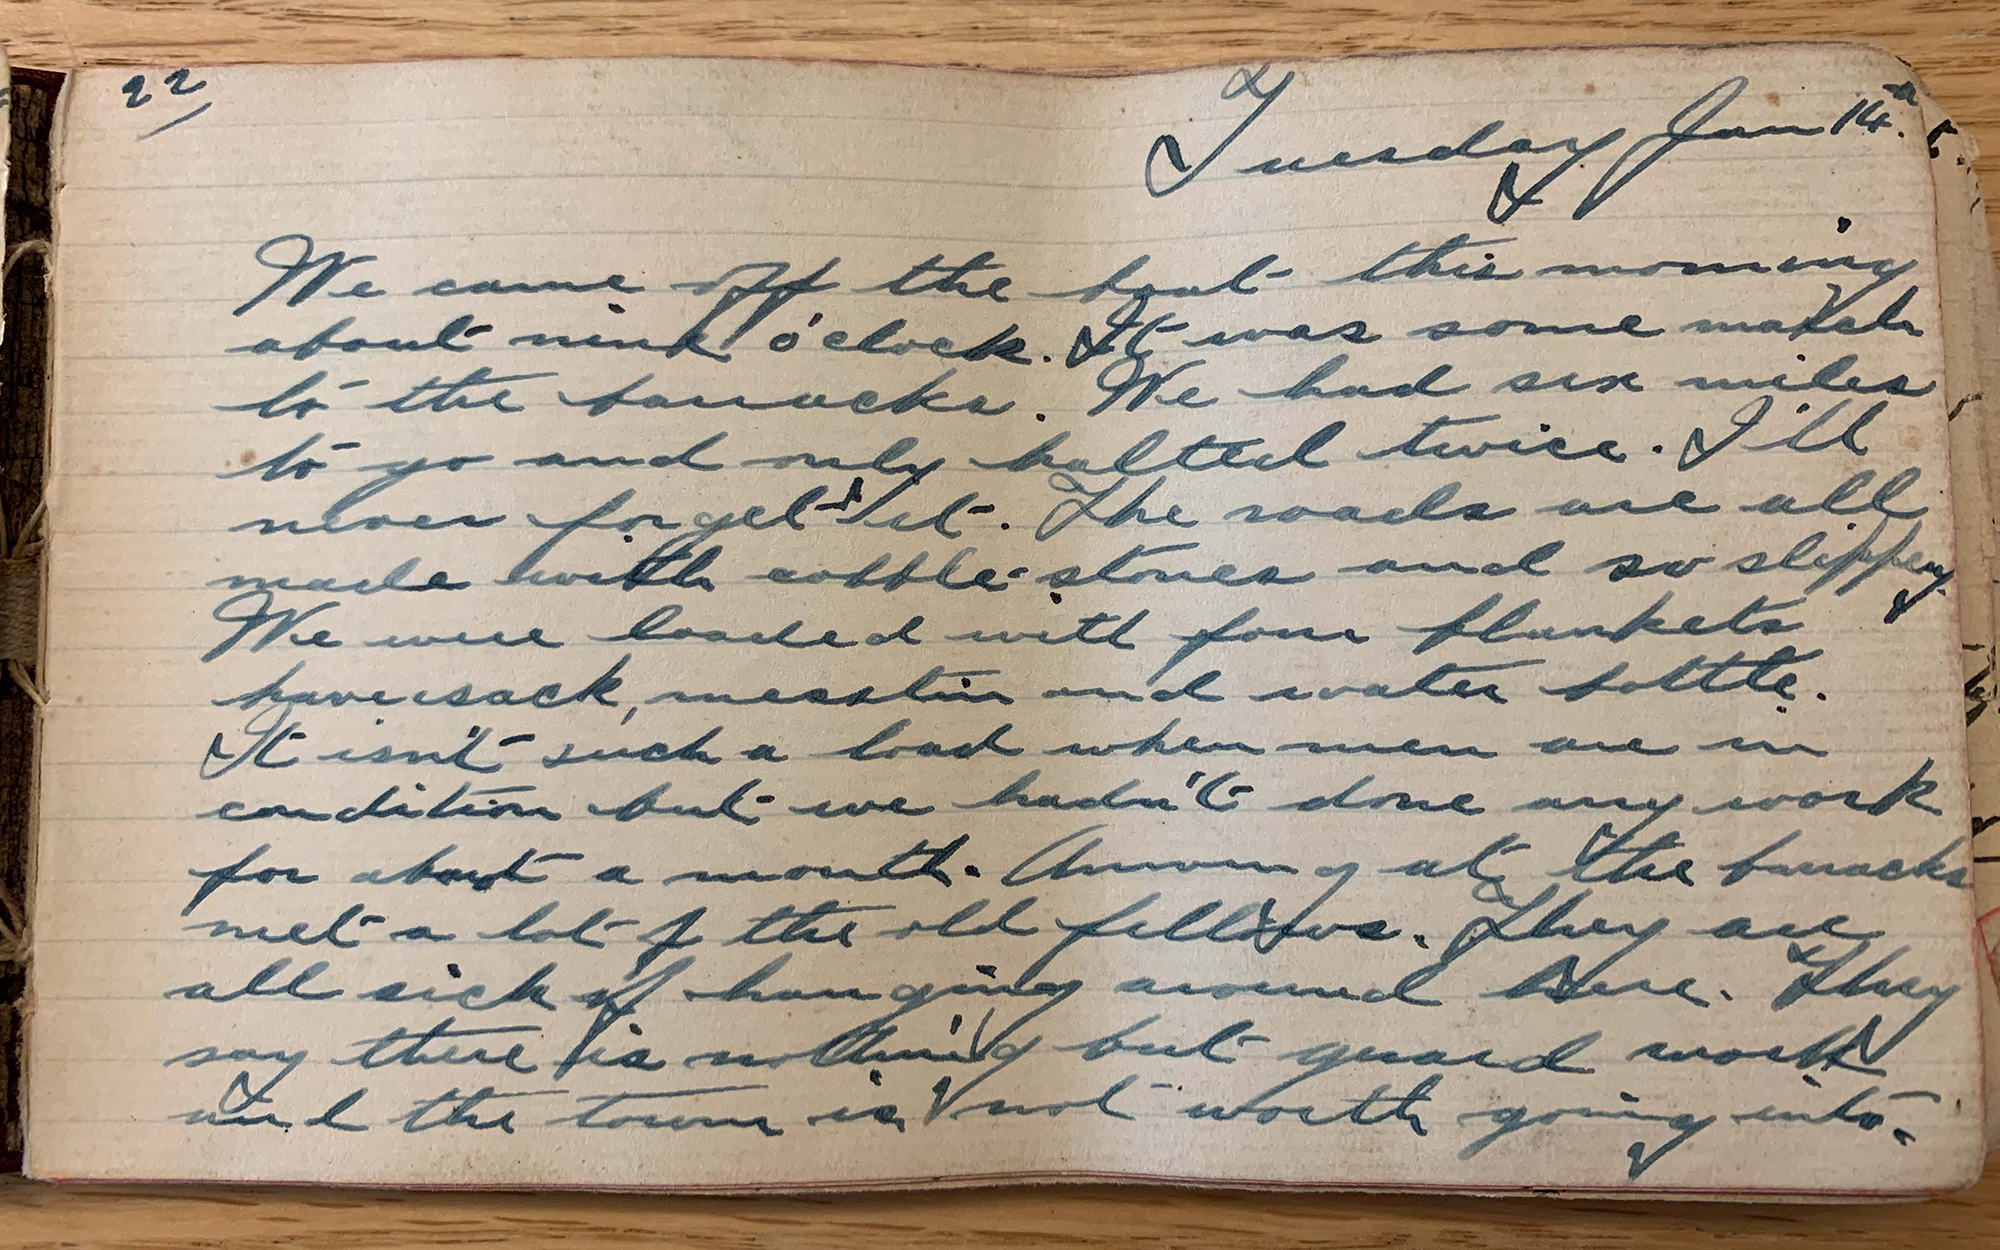 22
Tuesday Jan 14th
We came off the boat this morning
about nine o'clock. It was some march
to the barracks. We had six miles
to go and only halted twice. I'll
never forget it. The roads are all
made with cobble-stones and so slippery.
We were loaded with four blankets
haversack, messtin and water bottle.
It isn't such a load when men are in
condition but we hadn't done any work
for about a month. Arriving at the barracks
met a lot of the old fellows. They are
all sick of hanging around here. They
say there is nothing but guard work
and the town is not worth going into.